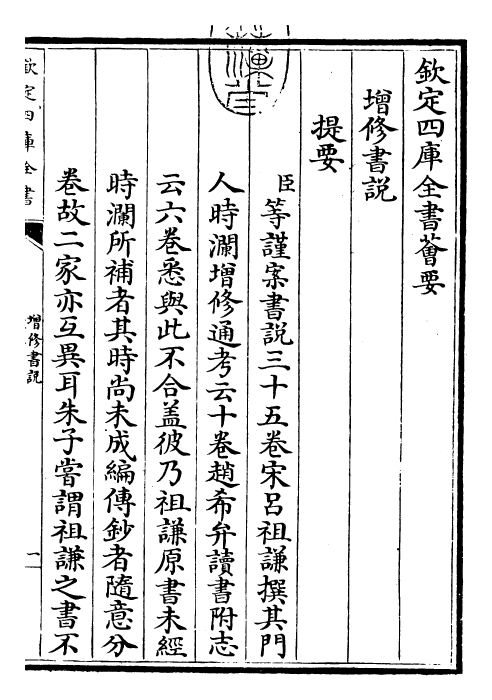 欽定四庫全書薈要
增修書説
提要
臣等謹案書説三十五卷宋吕祖謙撰其門
人時瀾增修通考云十卷趙希弁讀書附志
云六卷悉與此不合盖彼乃祖謙原書未經
時瀾所補者其時尚未成編傳鈔者隨意分
卷故二家亦互異耳朱子嘗謂祖謙之書不
欽定四庫全書
增修書説
一